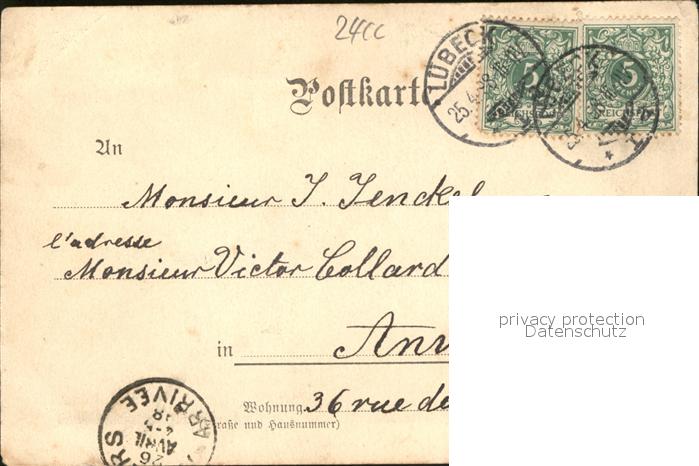 24cc
LÜBECK
25.4.98
5 5
Postkarte
An
Monsieur J. Jenckel
l'adresse
Monsieur Victor Collard
privacy protection
Datenschutz
in
Wohnung 36 rue de
(Straße und Hausnummer)
ARRIVEE
26
AVRIL